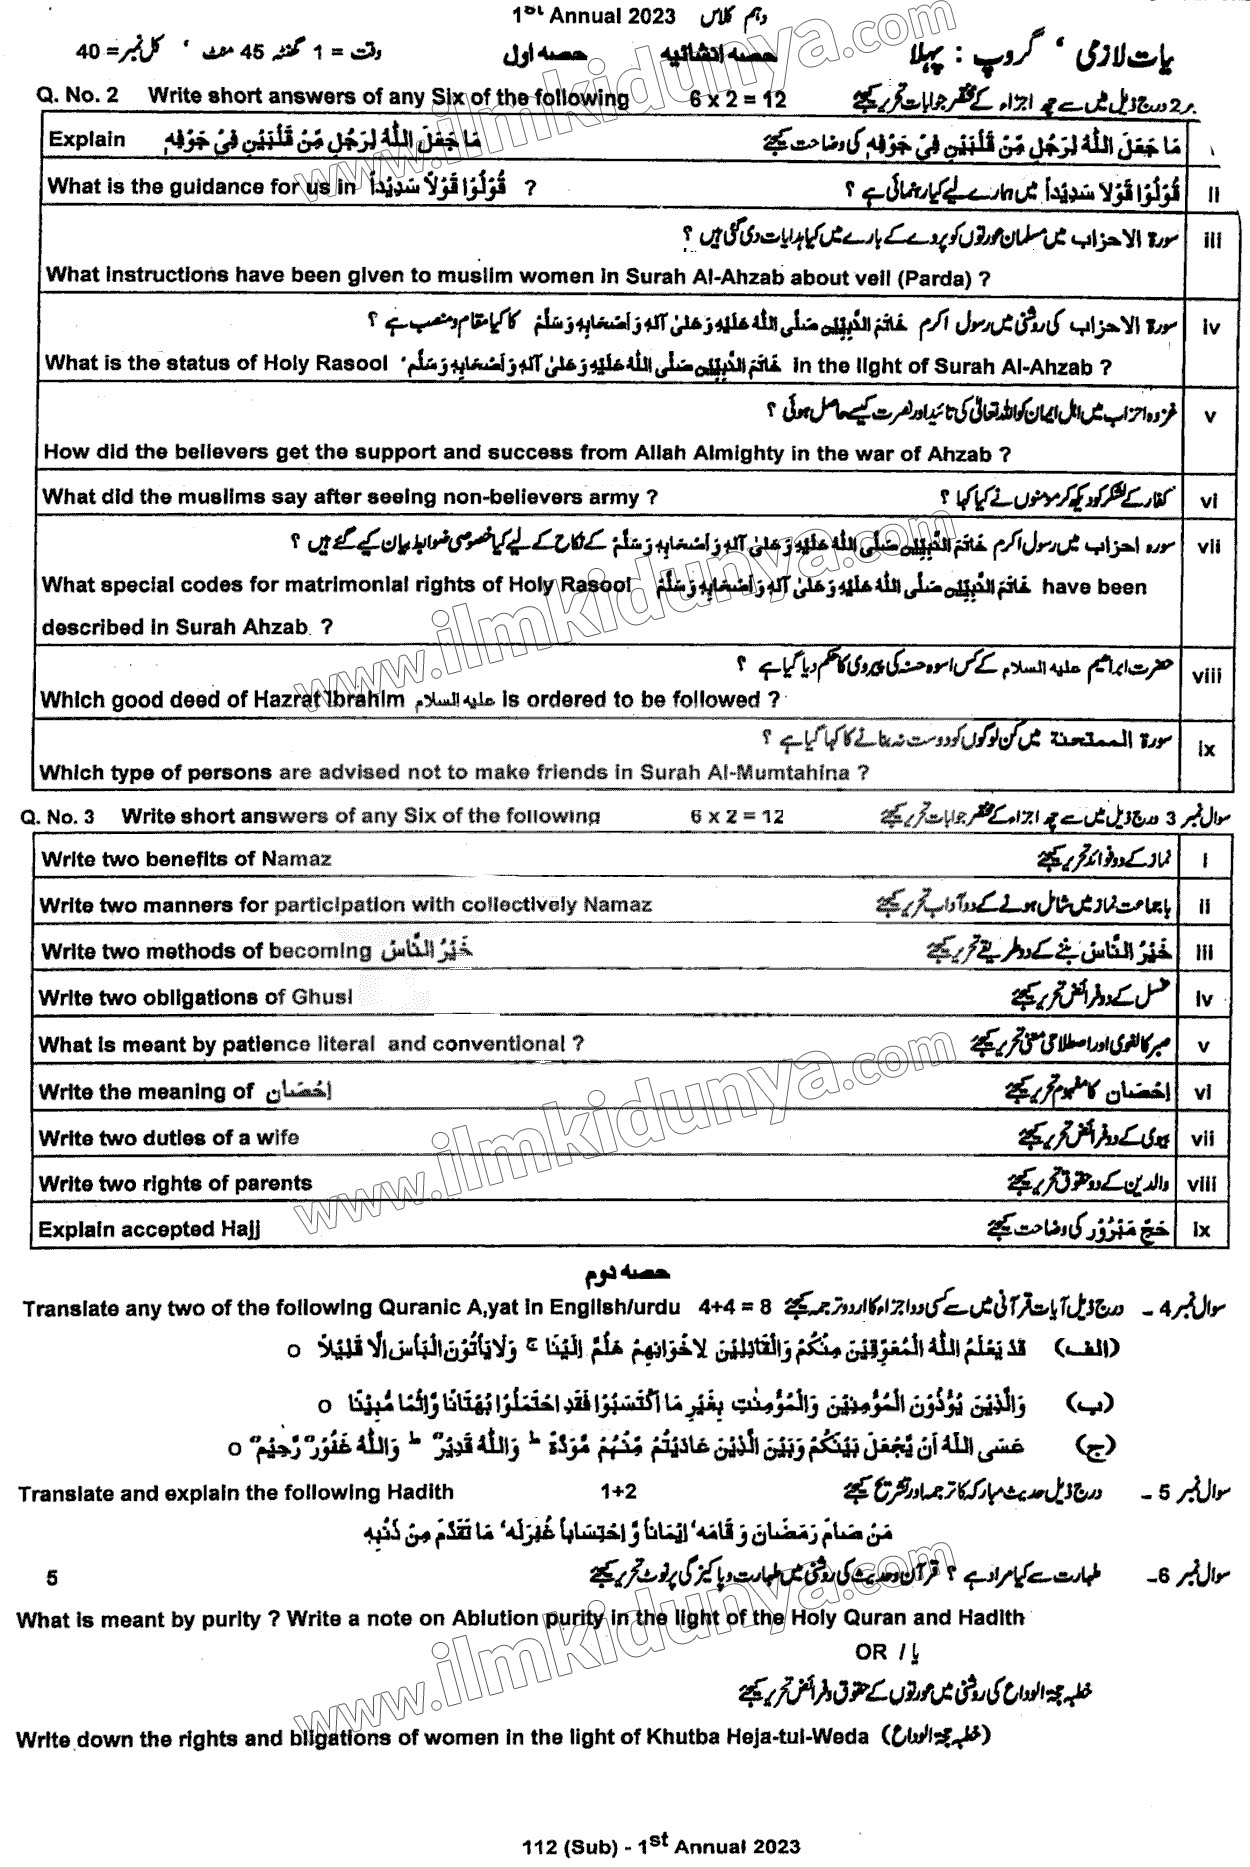 1st Annual 2023 دہم کلاس
یات لازمی ، گروپ : پہلا حصہ انشائیہ حصہ اول وقت = 1 گھنٹہ 45 منٹ ، کل نمبر = 40
Q. No. 2 Write short answers of any Six of the following 6 x 2 = 12 بر2 درج ذیل میں سے چھ اجزاء کے مختصر جوابات تحریر کیجئے
Explain مَا جَعَلَ اللّٰهُ لِرَجُلٍ مِّنْ قَلْبَيْنِ فِيْ جَوْفِهٖ مَا جَعَلَ اللّٰهُ لِرَجُلٍ مِّنْ قَلْبَيْنِ فِيْ جَوْفِهٖ کی وضاحت کیجئے
What is the guidance for us in قُوْلُوْا قَوْلًا سَدِيْداً ? قُوْلُوْا قَوْلًا سَدِيْداً میں ہمارے لیے کیا رہنمائی ہے ؟ ii
سورۃ الاحزاب میں مسلمان عورتوں کو پردے کے بارے میں کیا ہدایات دی گئی ہیں ؟ iii
What instructions have been given to muslim women in Surah Al-Ahzab about veil (Parda) ?
سورۃ الاحزاب کی روشنی میں رسول اکرم خَاتَمُ النَّبِيّٖن صَلَّى اللّٰهُ عَلَيْهِ وَعَلٰى آلِهٖ وَاَصْحَابِهٖ وَسَلَّمْ کا کیا مقام و منصب ہے ؟ iv
What is the status of Holy Rasool خَاتَمُ النَّبِيّٖن صَلَّى اللّٰهُ عَلَيْهِ وَعَلٰى آلِهٖ وَاَصْحَابِهٖ وَسَلَّمْ in the light of Surah Al-Ahzab ?
غزوہ احزاب میں اہل ایمان کو اللہ تعالیٰ کی تائید اور نصرت کیسے حاصل ہوئی ؟ v
How did the believers get the support and success from Allah Almighty in the war of Ahzab ?
What did the muslims say after seeing non-believers army ? کفار کے لشکر کو دیکھ کر مومنوں نے کیا کہا ؟ vi
سورہ احزاب میں رسول اکرم خَاتَمُ النَّبِيّٖن صَلَّى اللّٰهُ عَلَيْهِ وَعَلٰى آلِهٖ وَاَصْحَابِهٖ وَسَلَّمْ کے نکاح کے لیے کیا خصوصی ضوابط بیان کیے گئے ہیں ؟ vii
What special codes for matrimonial rights of Holy Rasool خَاتَمُ النَّبِيّٖن صَلَّى اللّٰهُ عَلَيْهِ وَعَلٰى آلِهٖ وَاَصْحَابِهٖ وَسَلَّمْ have been
described in Surah Ahzab ?
حضرت ابراہیم علیہ السلام کے کس اسوہ حسنہ کی پیروی کا حکم دیا گیا ہے ؟ viii
Which good deed of Hazrat Ibrahim علیہ السلام is ordered to be followed ?
سورۃ الممتحنۃ میں کن لوگوں کو دوست نہ بنانے کا کہا گیا ہے ؟ ix
Which type of persons are advised not to make friends in Surah Al-Mumtahina ?
Q. No. 3 Write short answers of any Six of the following 6 x 2 = 12 سوال نمبر 3 درج ذیل میں سے چھ اجزاء کے مختصر جوابات تحریر کیجئے
Write two benefits of Namaz نماز کے دو فوائد تحریر کیجئے i
Write two manners for participation with collectively Namaz باجماعت نماز میں شامل ہونے کے دو آداب تحریر کیجئے ii
Write two methods of becoming خَيْرُ النَّاسْ خَيْرُ النَّاسْ بننے کے دو طریقے تحریر کیجئے iii
Write two obligations of Ghusl غسل کے دو فرائض تحریر کیجئے iv
What is meant by patience literal and conventional ? صبر کا لغوی اور اصطلاحی معنی تحریر کیجئے v
Write the meaning of اِحْصَان اِحْصَان کا مفہوم تحریر کیجئے vi
Write two duties of a wife بیوی کے دو فرائض تحریر کیجئے vii
Write two rights of parents والدین کے دو حقوق تحریر کیجئے viii
Explain accepted Hajj حَجِّ مَبْرُوْر کی وضاحت کیجئے ix
حصہ دوم
Translate any two of the following Quranic A,yat in English/urdu 4+4 = 8 سوال نمبر 4 - درج ذیل آیات قرآنی میں سے کسی دو اجزاء کا اردو ترجمہ کیجئے
(الف) قَدْ يَعْلَمُ اللّٰهُ الْمُعَوِّقِيْنَ مِنْكُمْ وَالْقَائِلِيْنَ لِاِخْوَانِهِمْ هَلُمَّ اِلَيْنَا ۚ وَلَا يَأْتُوْنَ الْبَأْسَ اِلَّا قَلِيْلًا o
(ب) وَالَّذِيْنَ يُؤْذُوْنَ الْمُؤْمِنِيْنَ وَالْمُؤْمِنٰتِ بِغَيْرِ مَا اكْتَسَبُوْا فَقَدِ احْتَمَلُوْا بُهْتَانًا وَّاِثْمًا مُّبِيْنًا o
(ج) عَسَى اللّٰهُ اَنْ يَّجْعَلَ بَيْنَكُمْ وَبَيْنَ الَّذِيْنَ عَادَيْتُمْ مِّنْهُمْ مَّوَدَّةً ط وَاللّٰهُ قَدِيْرٌ ط وَاللّٰهُ غَفُوْرٌ رَّحِيْمٌ o
Translate and explain the following Hadith 1+2 سوال نمبر 5 - درج ذیل حدیث مبارکہ کا ترجمہ اور تشریح کیجئے
مَنْ صَامَ رَمَضَانَ وَقَامَهٗ اِيْمَاناً وَّاحْتِسَاباً غُفِرَلَهٗ مَا تَقَدَّمَ مِنْ ذَنْبِهٖ
سوال نمبر 6- طہارت سے کیا مراد ہے ؟ قرآن و حدیث کی روشنی میں طہارت و پاکیزگی پر نوٹ تحریر کیجئے 5
What is meant by purity ? Write a note on Ablution purity in the light of the Holy Quran and Hadith
OR / یا
خطبہ حجۃ الوداع کی روشنی میں عورتوں کے حقوق و فرائض تحریر کیجئے
Write down the rights and bligations of women in the light of Khutba Heja-tul-Weda (خطبہ حجۃ الوداع)
112 (Sub) - 1st Annual 2023
www.ilmkidunya.com
www.ilmkidunya.com
www.ilmkidunya.com
www.ilmkidunya.com